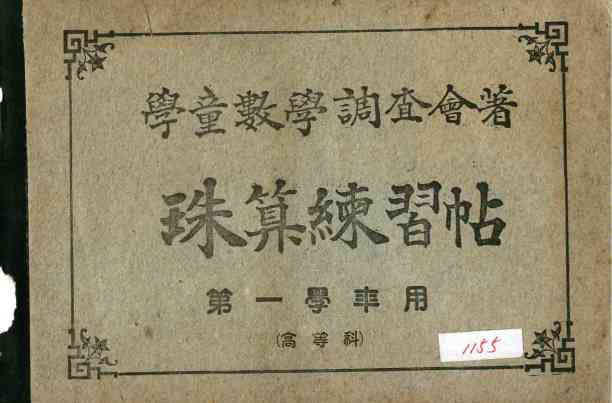 學童數學調査會著
珠算練習帖
第一學年用
(高等科)
1155